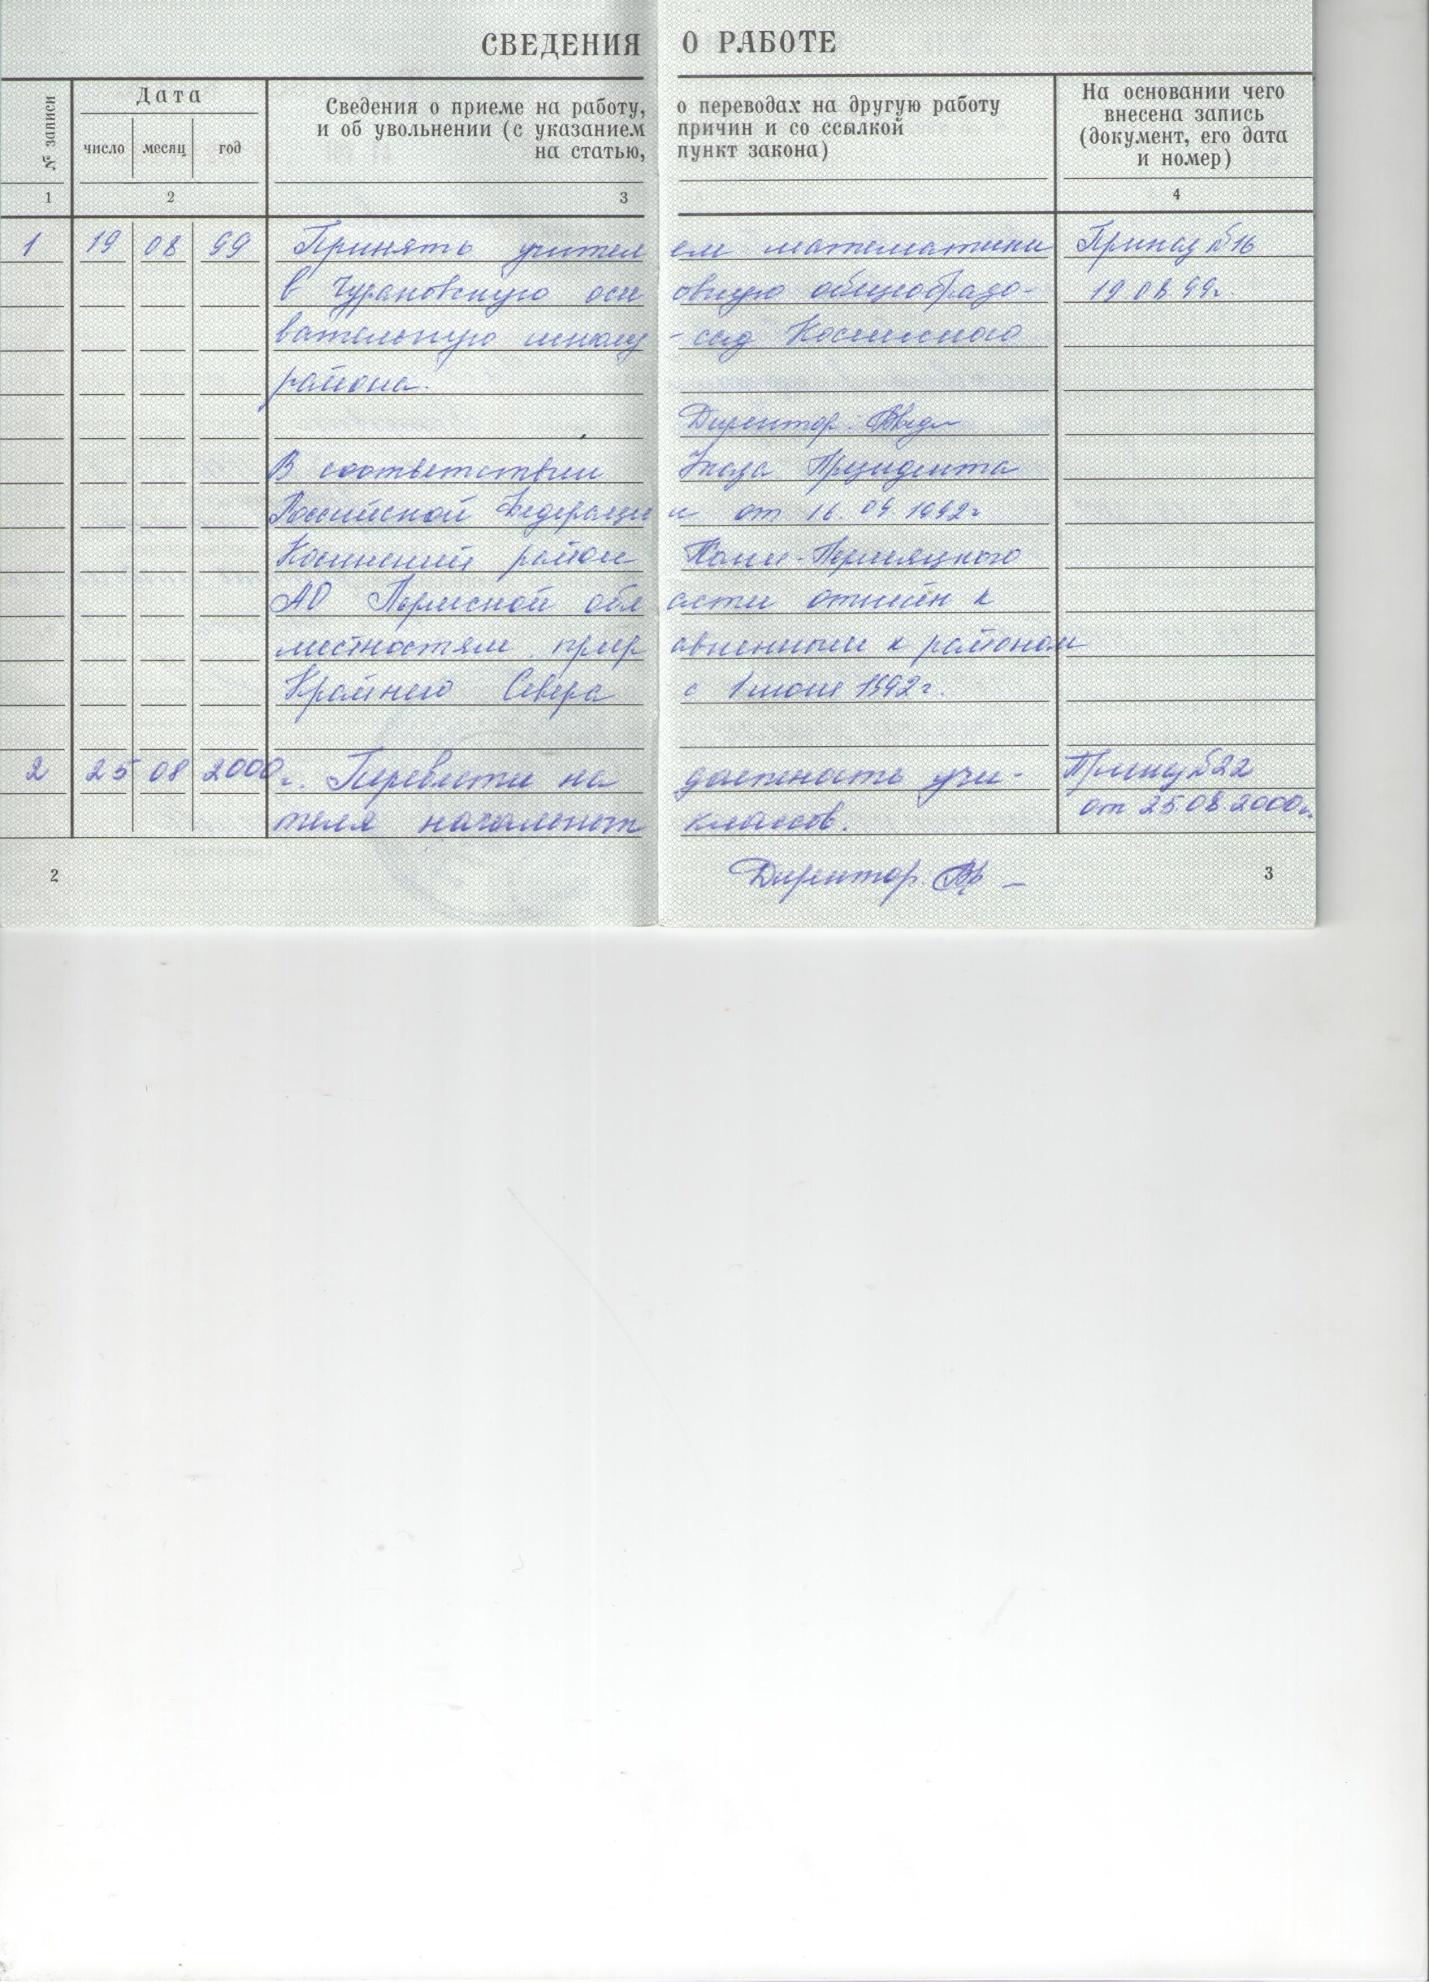 СВЕДЕНИЯ О РАБОТЕ
№ записи
Дата
число месяц год
Сведения о приеме на работу, о переводах на другую работу
и об увольнении (с указанием причин и со ссылкой
на статью, пункт закона)
На основании чего
внесена запись
(документ, его дата
и номер)
1 2 3 4
1 19 08 99 Принять учителем математики Приказ №16
в Чурановскую основную общеобразо- 19.08.99г.
вательную школу -сад Косинского
района.
Директор:
В соответствии Указа Президента
Российской Федерации от 16.04.1992г
Косинский район Коми-Пермяцкого
АО Пермской области отнесён к
местностям приравненным к районам
Крайнего Севера с 1 июня 1992г.
2 25 08 2000г. Перевести на должность учи- Приказ №22
теля начальных классов. от 25.08.2000г.
Директор.
2 3